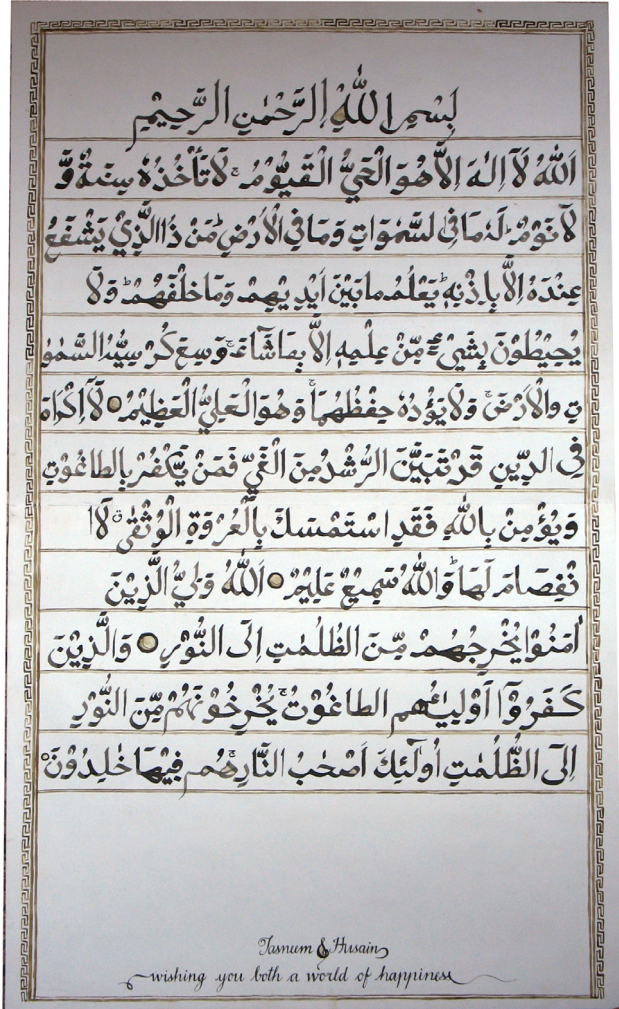 بِسْمِ اللّٰهِ الرَّحْمٰنِ الرَّحِيْمِ
اَللّٰهُ لَآ اِلٰهَ اِلَّا هُوَ الْحَيُّ الْقَيُّوْمُ ۚ لَا تَأْخُذُهٗ سِنَةٌ وَّ
لَا نَوْمٌ ؕ لَهٗ مَا فِى السَّمٰوَاتِ وَمَا فِى الْاَرْضِ ؕ مَنْ ذَا الَّذِيْ يَشْفَعُ
عِنْدَهٗ اِلَّا بِاِذْنِهٖ ؕ يَعْلَمُ مَا بَيْنَ اَيْدِيْهِمْ وَمَا خَلْفَهُمْ ؕ وَلَا
يُحِيْطُوْنَ بِشَيْءٍ مِّنْ عِلْمِهٖ اِلَّا بِمَا شَآءَ ۚ وَسِعَ كُرْسِيُّهُ السَّمٰوٰ
تِ وَالْاَرْضَ ۚ وَلَا يَؤُدُهٗ حِفْظُهُمَا ۚ وَهُوَ الْعَلِيُّ الْعَظِيْمُ ۝ لَآ اِكْرَاهَ
فِى الدِّيْنِ قَدْ تَبَيَّنَ الرُّشْدُ مِنَ الْغَيِّ فَمَنْ يَّكْفُرْ بِالطَّاغُوْتِ
وَيُؤْمِنْ بِاللّٰهِ فَقَدِ اسْتَمْسَكَ بِالْعُرْوَةِ الْوُثْقٰى ۗ لَا ا
نْفِصَامَ لَهَا ؕ وَاللّٰهُ سَمِيْعٌ عَلِيْمٌ ۝ اَللّٰهُ وَلِيُّ الَّذِيْنَ
اٰمَنُوْا يُخْرِجُهُمْ مِّنَ الظُّلُمٰتِ اِلَى النُّوْرِ ۝ وَالَّذِيْنَ
كَفَرُوْٓا اَوْلِيٰٓئُهُم الطَّاغُوْتُ ۙ يُخْرِجُوْنَهُمْ مِّنَ النُّوْرِ
اِلَى الظُّلُمٰتِ اُولٰٓئِكَ اَصْحٰبُ النَّارِ ۚ هُمْ فِيْهَا خٰلِدُوْنَ ۝
Tasneem & Husain
wishing you both a world of happiness